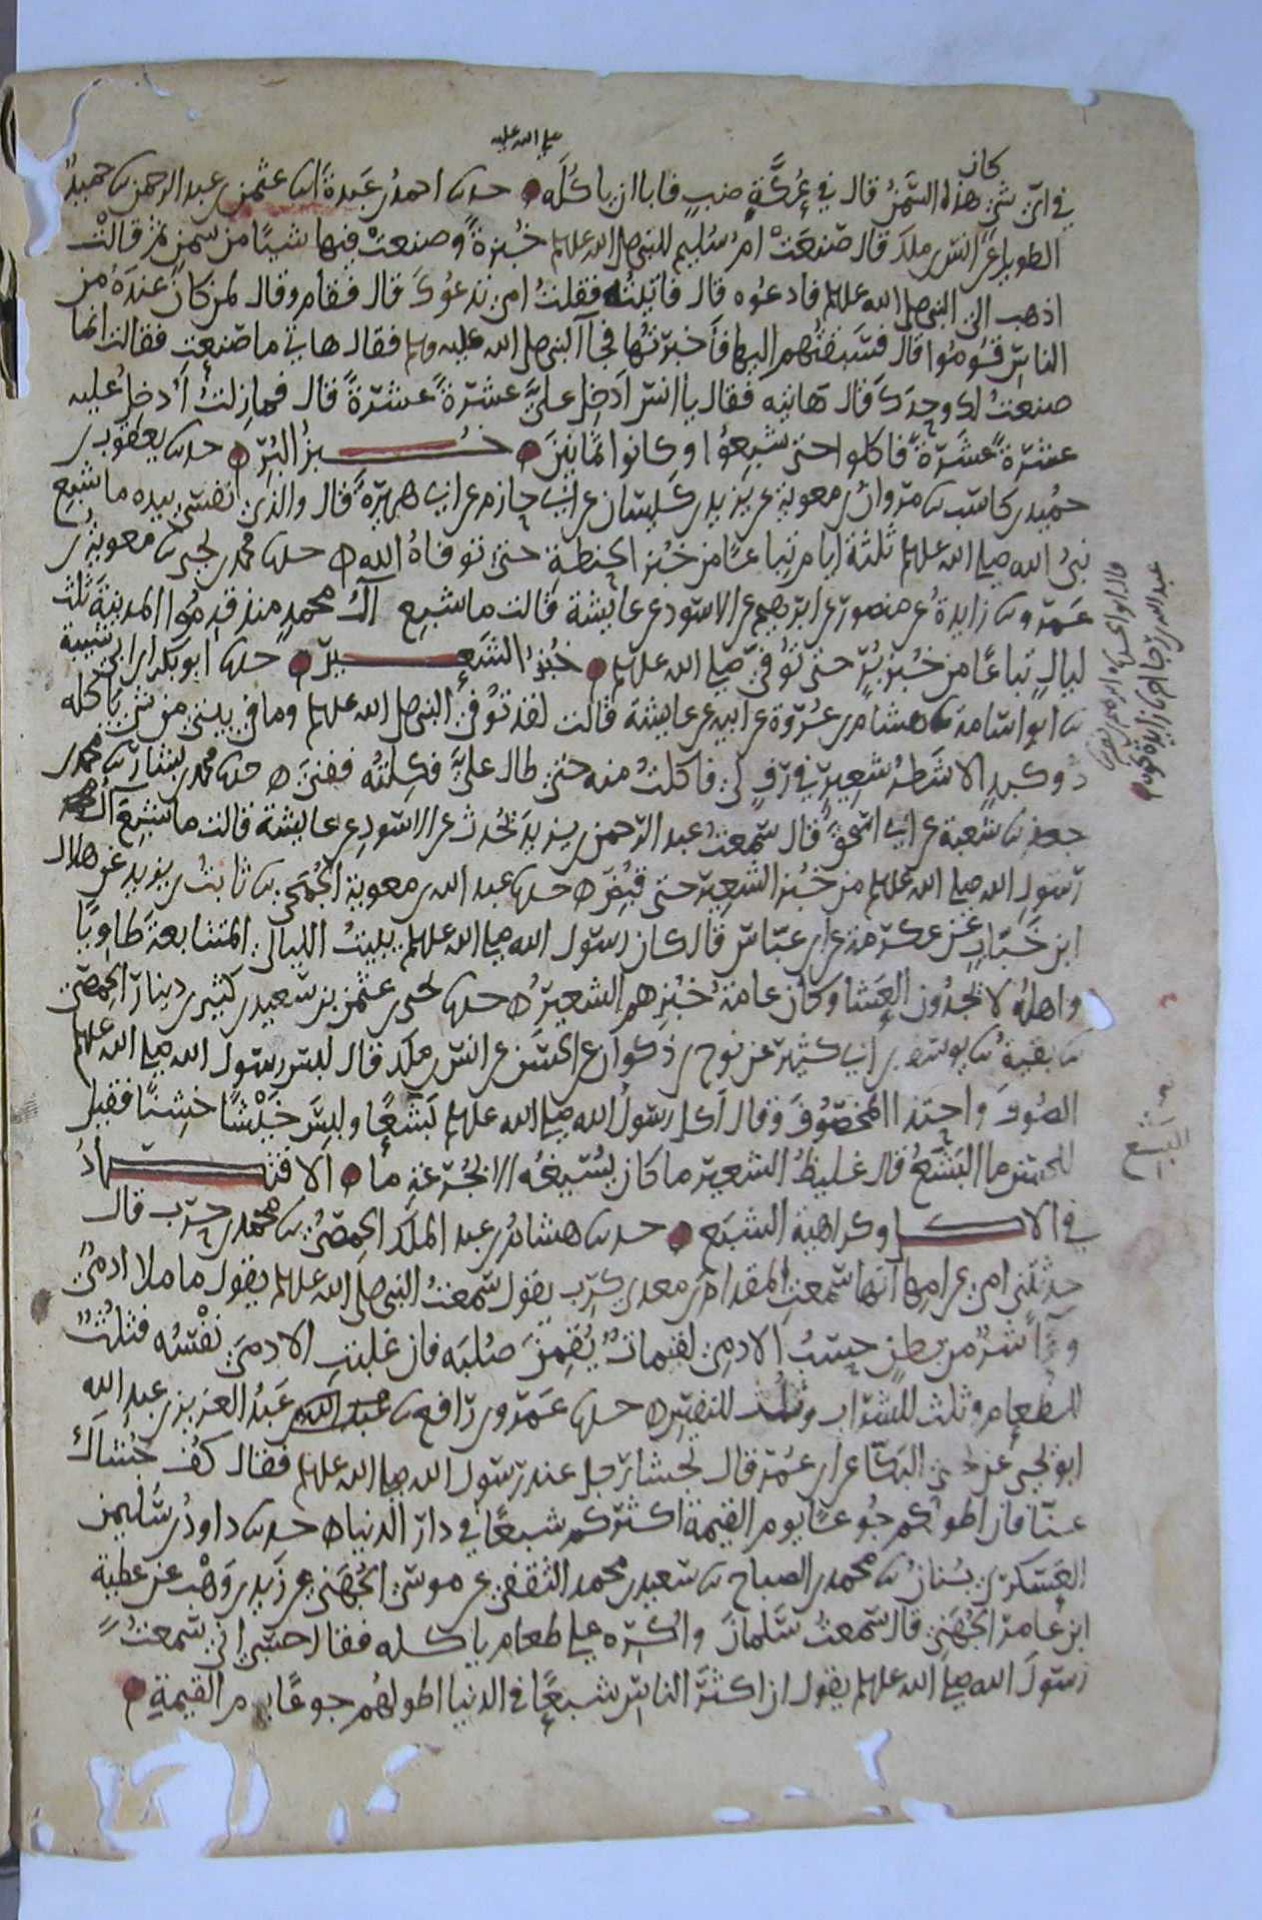 صلى الله عليه
كان
في اي شي هذا السمن قال في عكة ضب فابا ان ياكله ۝ حدثنا احمد بن عبدة انا عثمن بن عبد الرحمن نا حميد
الطويل عن انس بن ملك قال صنعت ام سليم للنبي صلى الله عليه وسلم خبزة وصنعت فيها شيا من سمن ثم قالت
اذهب الى النبي صلى الله عليه وسلم فادعوه قال فاتيته فقلت امي تدعوك قال فقام وقال لمن كان عنده من
الناس قوموا قال فسبقتهم اليها فاخبرتها فجا النبي صلى الله عليه وسلم فقال هاتي ما صنعت فقالت انما
صنعته لك وحدك قال هاتيه فقال يا انس ادخل علي عشرة عشرة قال فما زلت ادخل عليه
عشرة عشرة فاكلوا حتى شبعوا وكانوا ثمانين ۝ خبز البر ۝ حدثنا يعقوب بن
حميد بن كاسب نا مروان بن معوية عن يزيد بن كيسان عن ابي حازم عن ابي هريرة قال والذي نفسي بيده ما شبع
نبي الله صلى الله عليه وسلم ثلثة ايام تباعا من خبز الحنطة حتى توفاه الله ۝ حدثنا محمد بن يحيى نا معوية بن
عمرو نا زايدة عن منصور عن ابرهيم عن الاسود عن عايشة قالت ما شبع آل محمد منذ قدموا المدينة ثلث
ليال تباعا من خبز بر حتى توفي صلى الله عليه وسلم ۝ خبز الشعير ۝ حدثنا ابو بكر بن ابي شيبة
نا ابو اسامة نا هشام بن عروة عن ابيه عن عايشة قالت لقد توفي النبي صلى الله عليه وسلم وما في بيتي من شي ياكله
ذو كبد الا شطر شعير في رف لي فاكلت منه حتى طال علي فكلته ففني ۝ حدثنا محمد بن بشار نا محمد بن
جعفر نا شعبة عن ابي اسحق قال سمعت عبد الرحمن بن يزيد يحدث عن الاسود عن عايشة قالت ما شبع آل محمد
رسول الله صلى الله عليه وسلم من خبز الشعير حتى قبض ۝ حدثنا عبد الله بن معوية الجمحي نا ثابت بن يزيد عن هلال
ابن خباب عن عكرمة عن ابن عباس قال كان رسول الله صلى الله عليه وسلم يبيت الليالي المتتابعة طاويا
واهله لا يجدون العشا وكان عامة خبزهم الشعير ۝ حدثنا يحيى بن عثمن بن سعيد بن كثير بن دينار الحمصي
نا بقية نا يوسف بن ابي كثير عن نوح بن ذكوان عن الحسن عن انس بن ملك قال لبس رسول الله صلى الله عليه وسلم
الصوف واحتذا المخصوف وقال اكل رسول الله صلى الله عليه وسلم بشعا ولبس خشنا فقيل
للحسن ما البشع قال غليظ الشعير ما كان يسيغه الا بجرعة ما ۝ الاقتصاد
في الاكل وكراهية الشبع ۝ حدثنا هشام بن عبد الملك الحمصي نا محمد بن حرب قال
حدثتني امي عن امها انها سمعت المقدام بن معدي كرب يقول سمعت النبي صلى الله عليه وسلم يقول ما ملا ادمي
وعاء شر من بطن حسب الادمي لقيمات يقمن صلبه فان غلبت الادمي نفسه فثلث
للطعام وثلث للشراب وثلث للنفس ۝ حدثنا عمرو بن رافع نا عبد العزيز بن عبد الله
ابو يحيى عن يحيى البكا عن ابن عمر قال تجشا رجل عند رسول الله صلى الله عليه وسلم فقال كف جشاك
عنا فان اطولكم جوعا يوم القيمة اكثركم شبعا في دار الدنيا ۝ حدثنا داود بن سليمن
العسكري نا محمد بن الصباح نا سعيد بن محمد الثقفي عن موسى الجهني عن زيد بن وهب عن عطية
ابن عامر الجهني قال سمعت سلمان واكره على طعام ياكله فقال حسبي اني سمعت
رسول الله صلى الله عليه وسلم يقول ان اكثر الناس شبعا في الدنيا اطولهم جوعا يوم القيمة ۝
قال ابو الحسن
عبد الله بن رجا نا زايدة نحوه
البشع